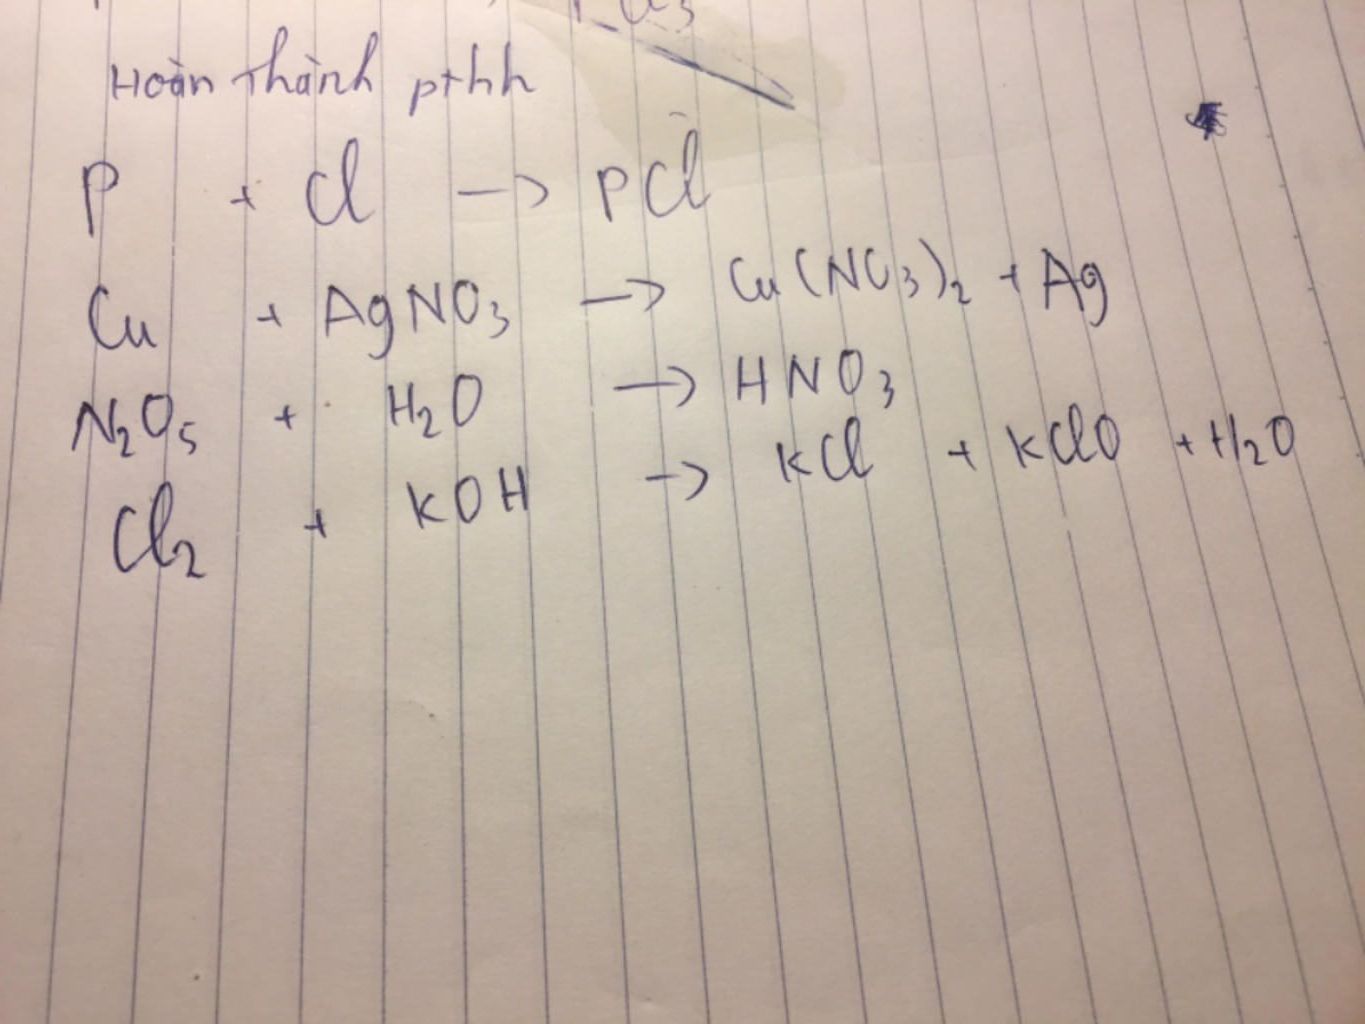 Hoàn thành pthh
P + Cl → PCl
Cu + AgNO3 → Cu(NO3)2 + Ag
N2O5 + H2O → HNO3
Cl2 + KOH → KCl + KClO + H2O